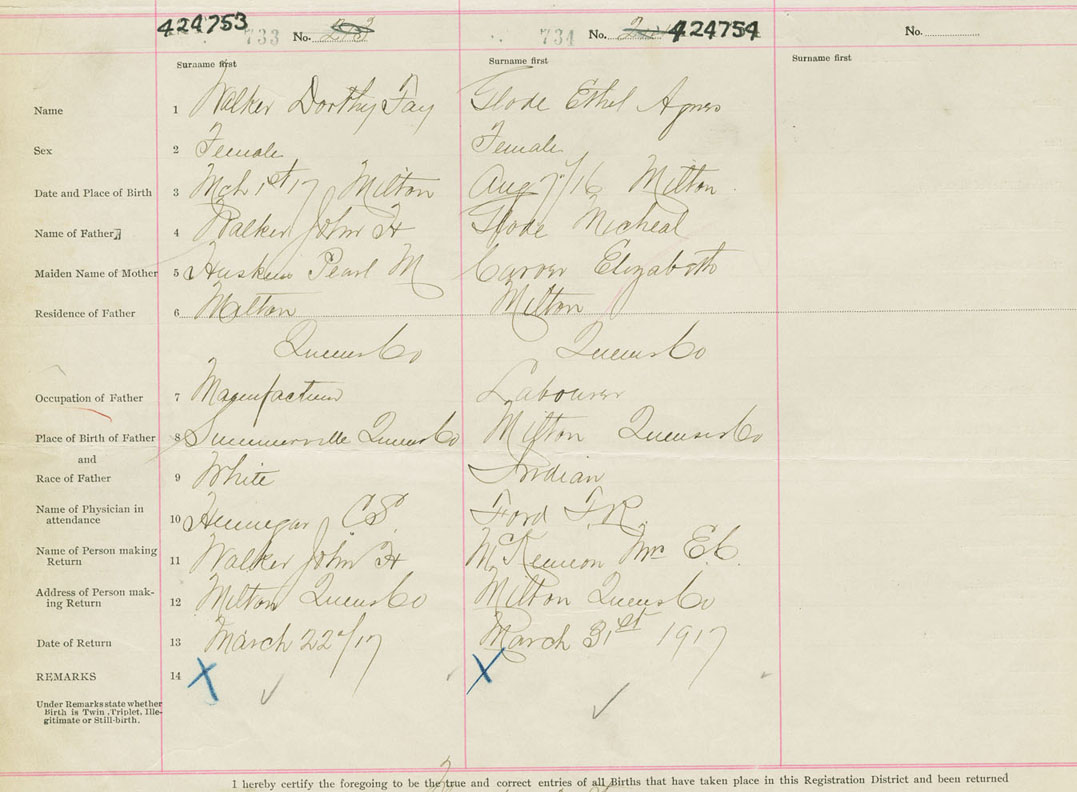 424753
733 No.
734 No. 424754
No.
Surname first Surname first Surname first
Name 1 Walker Dorthy Fay Glode Ethel Agnes
Sex 2 Female Female
Date and Place of Birth 3 Mch 1st 17 Milton Aug 7/16 Milton
Name of Father 4 Walker John H Glode Micheal
Maiden Name of Mother 5 Huskins Pearl M Carver Elizabeth
Residence of Father 6 Milton Milton
Queens Co Queens Co
Occupation of Father 7 Manufacturer Labourer
Place of Birth of Father 8 Summerville Queens Co Milton Queens Co
and
Race of Father 9 White Indian
Name of Physician in
attendance 10 Hennigar CS Ford F.R.
Name of Person making
Return 11 Walker John H McKennon Mrs E.C.
Address of Person mak-
ing Return 12 Milton Queens Co Milton Queens Co
Date of Return 13 March 22nd/17 March 31st 1917
REMARKS 14 X X
Under Remarks state whether
Birth is Twin, Triplet, Ille-
gitimate or Still-birth.
I hereby certify the foregoing to be the true and correct entries of all Births that have taken place in this Registration District and been returned